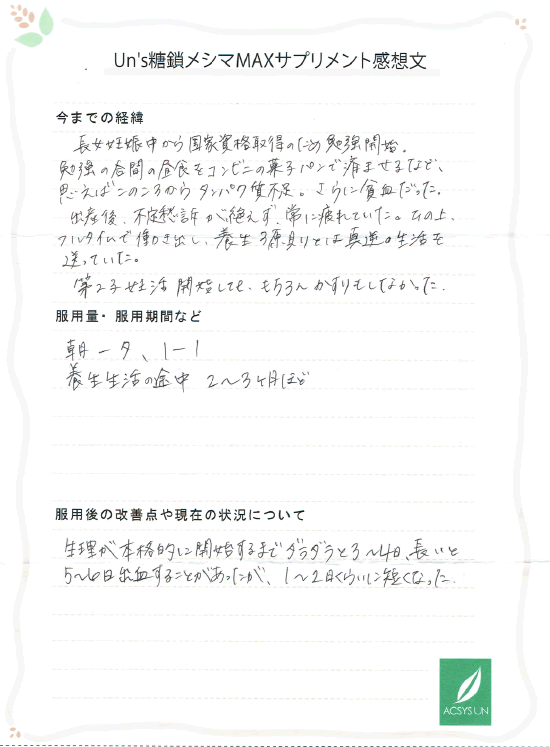 Un's糖鎖メシマMAXサプリメント感想文
今までの経緯
長女妊娠中から国家資格取得のため勉強開始。
勉強の合間の昼食をコンビニの菓子パンで済ませるなど、
思えばこのころからタンパク質不足。さらに貧血だった。
出産後、不定愁訴が絶えず、常に疲れていた。その上、
フルタイムで働き出し、養生子原則とは真逆の生活を
送っていた。
第2子妊活開始しても、もちろんかすりもしなかった。
服用量・服用期間など
朝―夕、1―1
養生生活の途中 2〜3ヶ月ほど
服用後の改善点や現在の状況について
生理が本格的に開始するまでダラダラと3〜4日、長いと
5〜6日出血することがあったが、1〜2日くらいに短くなった。
ACSYSUN